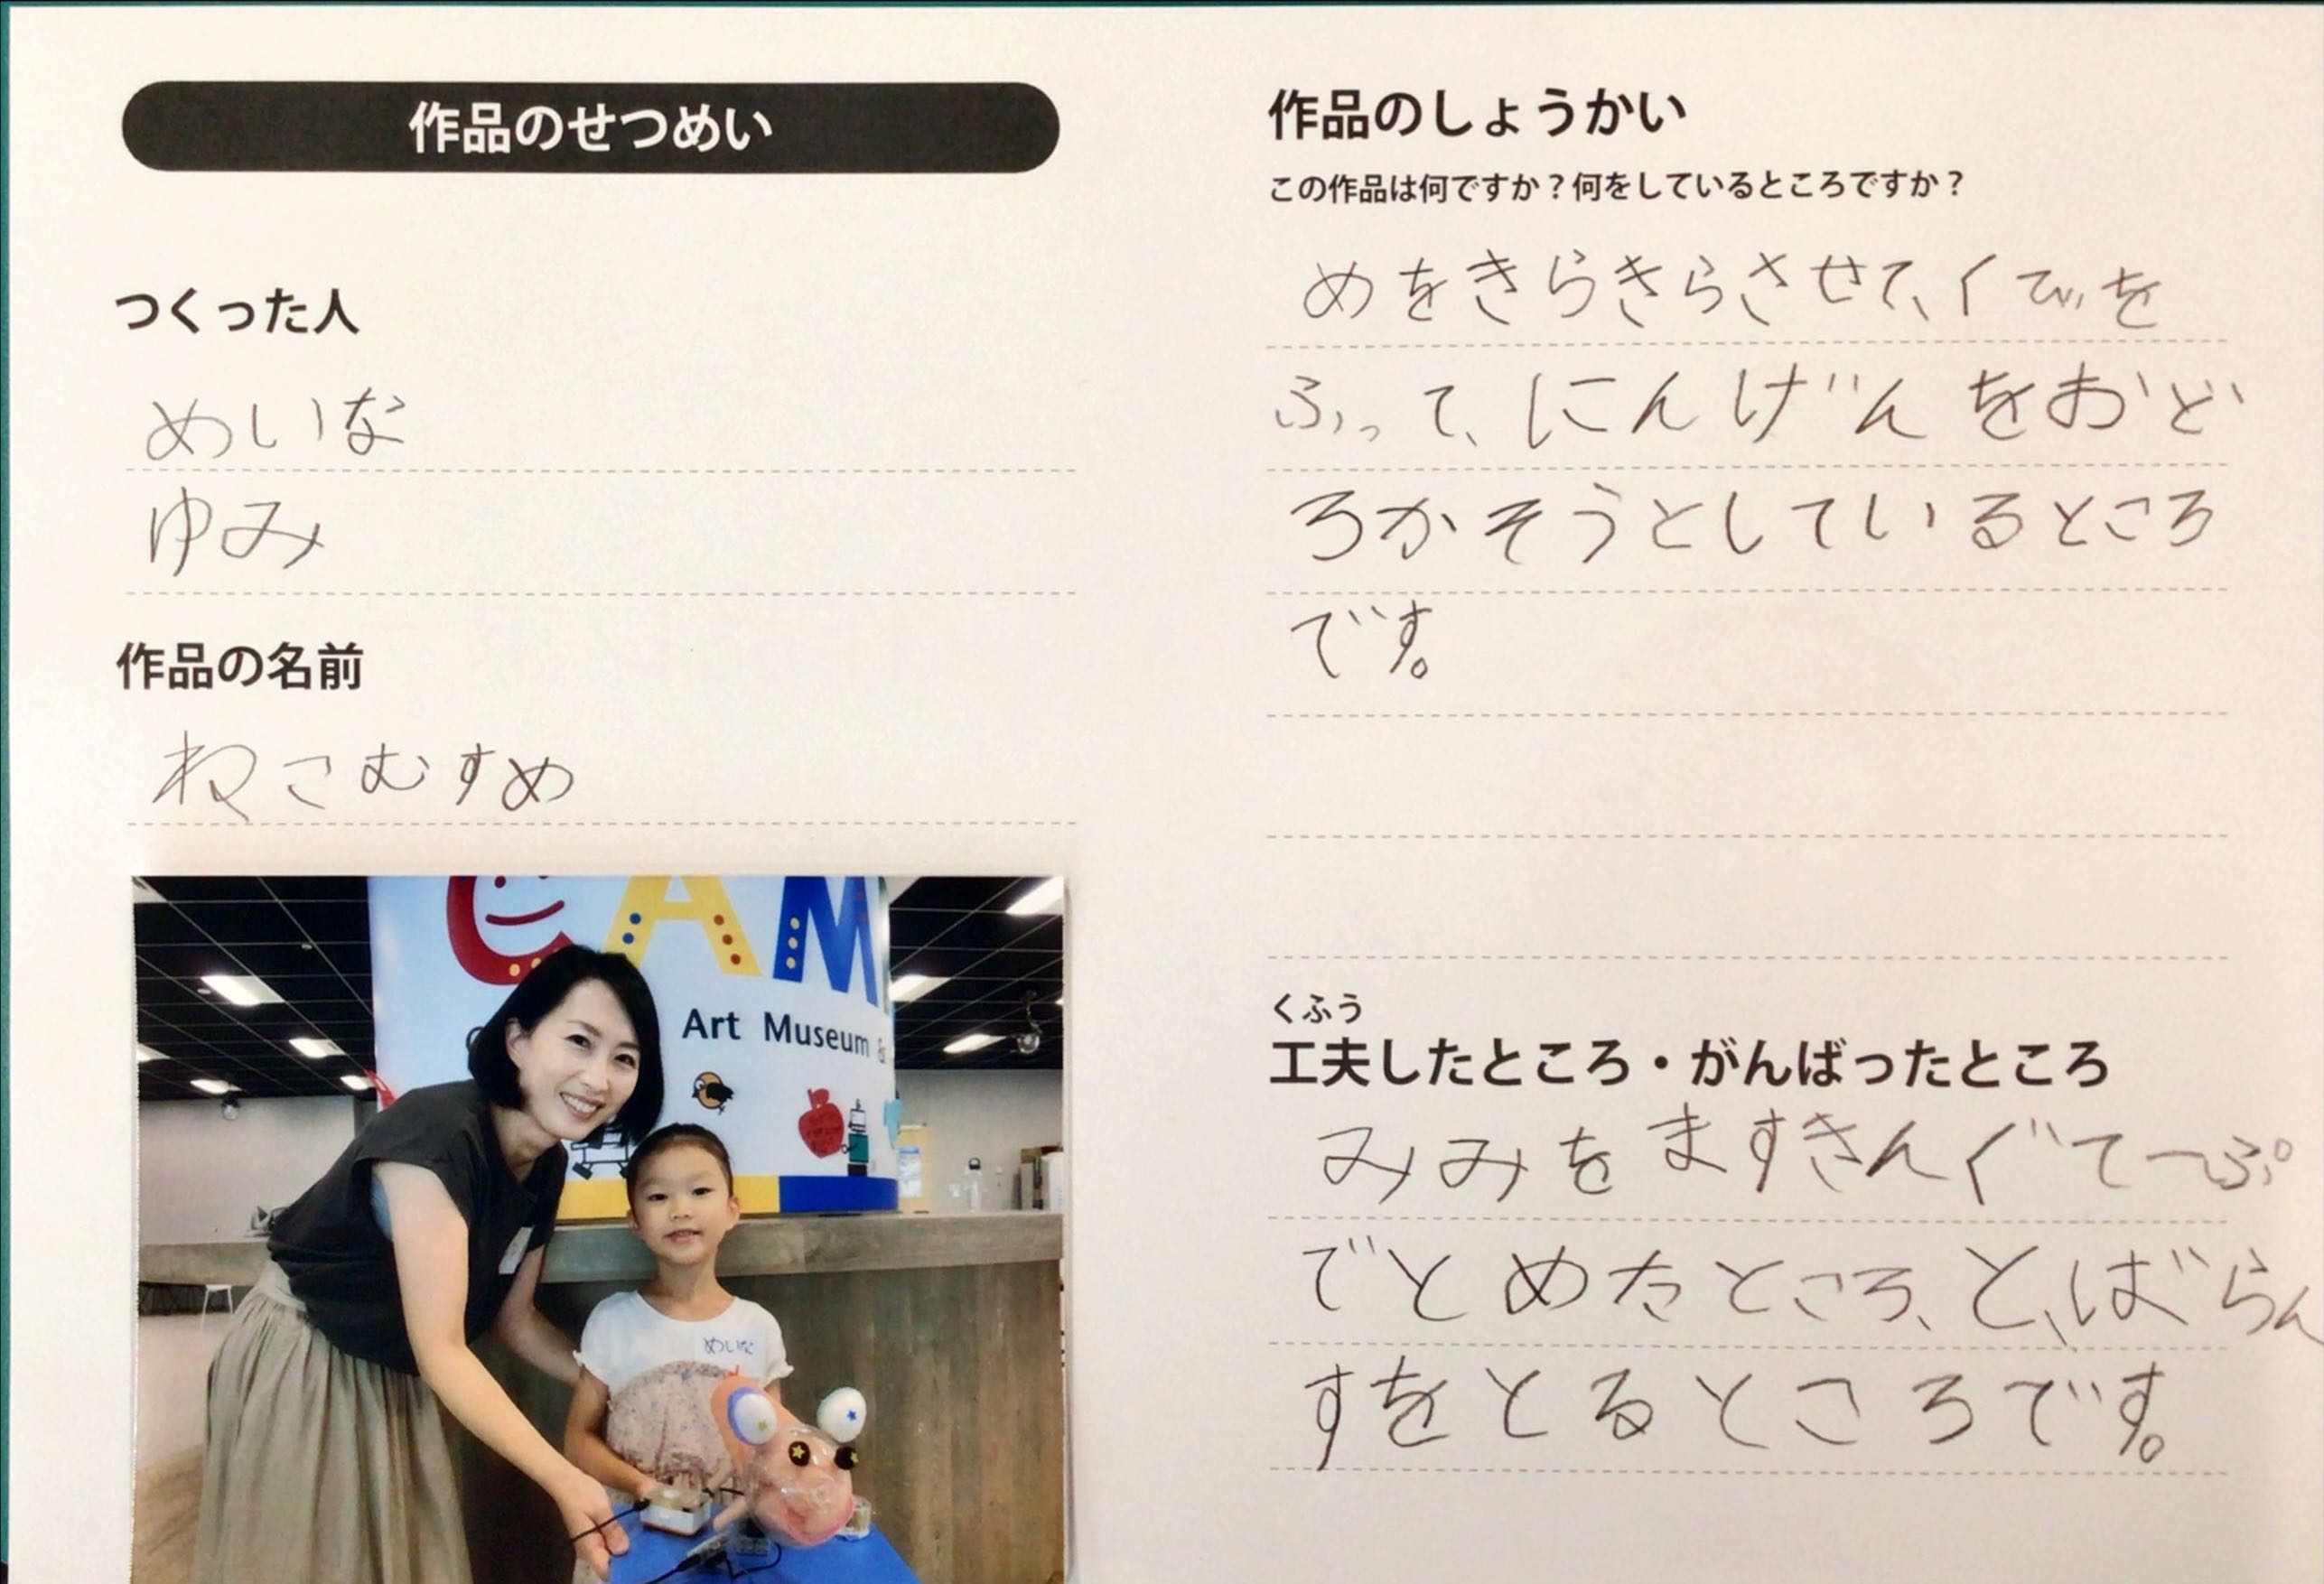 作品のせつめい
つくった人
めいな
ゆみ
作品の名前
ねこむすめ
CAM
Art Museum &
めいな
作品のしょうかい
この作品は何ですか？何をしているところですか？
めをきらきらさせて、くびを
ふって、にんげんをおど
ろかそうとしているところ
です。
くふう
工夫したところ・がんばったところ
みみをますきんぐてーぷ
でとめたところ、と、ばらん
すをとるところです。